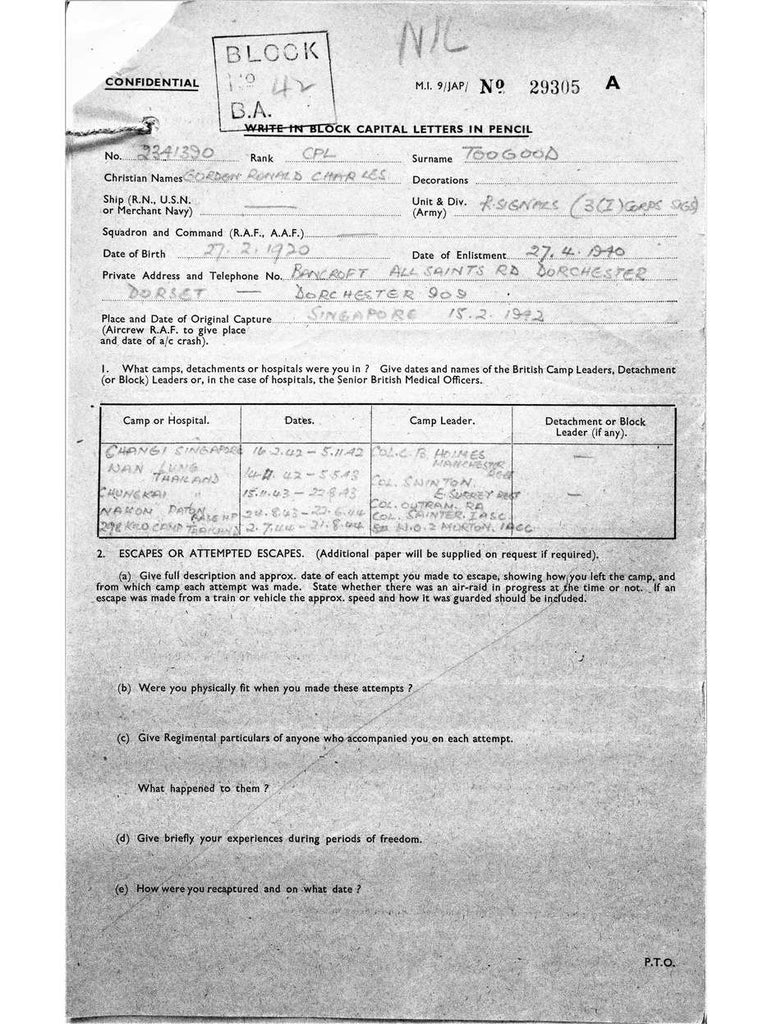 NIL
BLOCK
No 42
B.A.
CONFIDENTIAL
M.I. 9/JAP/ No 29305 A
WRITE IN BLOCK CAPITAL LETTERS IN PENCIL
No. 2341390 Rank CPL Surname TOOGOOD
Christian Names GORDON RONALD CHARLES Decorations
Ship (R.N., U.S.N. or Merchant Navy) — Unit & Div. (Army) R. SIGNALS (3(I) CORPS SIGS)
Squadron and Command (R.A.F., A.A.F.) —
Date of Birth 27.2.1920 Date of Enlistment 27.4.1940
Private Address and Telephone No. BANCROFT ALL SAINTS RD DORCHESTER
DORSET — DORCHESTER 909
Place and Date of Original Capture SINGAPORE 15.2.1942
(Aircrew R.A.F. to give place
and date of a/c crash).
1. What camps, detachments or hospitals were you in ? Give dates and names of the British Camp Leaders, Detachment
(or Block) Leaders or, in the case of hospitals, the Senior British Medical Officers.
Camp or Hospital. Dates. Camp Leader. Detachment or Block Leader (if any).
CHANGI SINGAPORE 16.2.42 – 5.11.42 COL. C. B. HOLMES MANCHESTER REGT —
WAN LUNG THAILAND 42 – 5.5.43 COL. SWINTON E. SURREY REGT
CHUNGKAI " COL. OUTRAM. RA —
NAKOM PATON BASE HP 24.8.43 – 22.6.44 COL. SAINTER. IASC
KILO CAMP THAILAND 2.7.44 – 21.8.44 W.O.2 MORTON. IAOC
2. ESCAPES OR ATTEMPTED ESCAPES. (Additional paper will be supplied on request if required).
(a) Give full description and approx. date of each attempt you made to escape, showing how you left the camp, and
from which camp each attempt was made. State whether there was an air-raid in progress at the time or not. If an
escape was made from a train or vehicle the approx. speed and how it was guarded should be included.
(b) Were you physically fit when you made these attempts ?
(c) Give Regimental particulars of anyone who accompanied you on each attempt.
What happened to them ?
(d) Give briefly your experiences during periods of freedom.
(e) How were you recaptured and on what date ?
P.T.O.